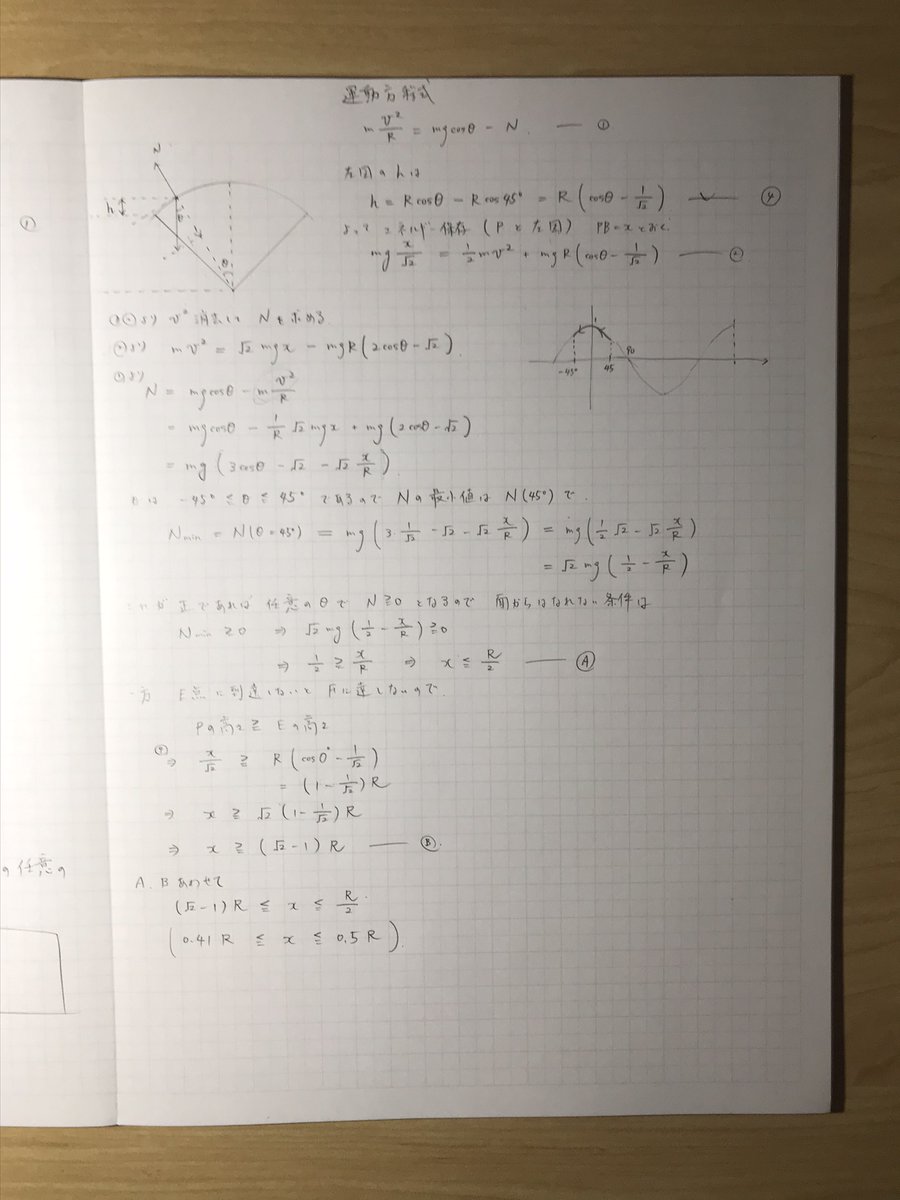 運動方程式
m v²/R = mg cosθ - N. — ①
左図のhは
h = R cosθ - R cos 45° = R (cosθ - 1/√2) — ④
よって エネルギー保存 (Pと左図) PB = x とおく
mg x/√2 = 1/2 mv² + mgR (cosθ - 1/√2) — ②
N
h
θ
①
①②より v² 消去し N を求める
②より mv² = √2 mgx - mgR (2cosθ - √2).
①より
N = mg cosθ - m v²/R
= mg cosθ - 1/R √2 mgx + mg (2cosθ - √2)
= mg (3cosθ - √2 - √2 x/R).
-45° 45 90
θは -45° ≦ θ ≦ 45° であるので Nの最小値は N(45°) で.
Nmin = N(θ=45°) = mg (3・1/√2 - √2 - √2 x/R) = mg (1/2 √2 - √2 x/R)
= √2 mg (1/2 - x/R)
これが正であれば 任意のθで N≧0 となるので 面からはなれない条件は
Nmin ≧ 0 ⇒ √2 mg (1/2 - x/R) ≧ 0
⇒ 1/2 ≧ x/R ⇒ x ≦ R/2 — Ⓐ
一方 E点に到達しないと Fに達しないので.
Pの高さ ≧ Eの高さ
④ ⇒ x/√2 ≧ R (cos0° - 1/√2)
= (1 - 1/√2) R
⇒ x ≧ √2 (1 - 1/√2) R
⇒ x ≧ (√2 - 1) R — Ⓑ.
A. B あわせて
(√2 - 1) R ≦ x ≦ R/2.
(0.41 R ≦ x ≦ 0.5 R).
の任意の